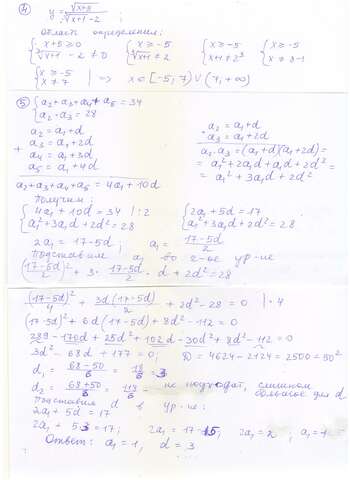 ④ y = √(x+5) / (∛(x+1) - 2)
Область определения:
{ x+5 ≥ 0 { x ≥ -5 { x ≥ -5 { x ≥ -5
{ ∛(x+1) - 2 ≠ 0 { ∛(x+1) ≠ 2 { x+1 ≠ 2³ { x ≠ 8-1
{ x ≥ -5
{ x ≠ 7 | => x ∈ [-5; 7) ∪ (7; +∞)
⑤ { a₂ + a₃ + a₄ + a₅ = 34
{ a₂ · a₃ = 28
a₂ = a₁ + d
+ a₃ = a₁ + 2d
a₄ = a₁ + 3d
a₅ = a₁ + 4d
a₂+a₃+a₄+a₅ = 4a₁ + 10d
a₂ = a₁ + d
· a₃ = a₁ + 2d
a₂ · a₃ = (a₁+d)(a₁+2d) =
= a₁² + 2a₁d + a₁d + 2d² =
= a₁² + 3a₁d + 2d²
Получим:
{ 4a₁ + 10d = 34 | :2 { 2a₁ + 5d = 17
{ a₁² + 3a₁d + 2d² = 28 { a₁² + 3a₁d + 2d² = 28
2a₁ = 17 - 5d ; a₁ = (17-5d)/2
Подставим a₁ во 2-ое ур-ие
((17-5d)/2)² + 3 · (17-5d)/2 · d + 2d² = 28
(17-5d)²/4 + 3d(17-5d)/2 + 2d² - 28 = 0 | · 4
(17-5d)² + 6d(17-5d) + 8d² - 112 = 0
289 - 170d + 25d² + 102d - 30d² + 8d² - 112 = 0
3d² - 68d + 177 = 0; D = 4624 - 2124 = 2500 = 50²
d₁ = (68-50)/6 = 18/6 = 3
d₂ = (68+50)/6 = 118/6 - не подходит, слишком
большое для d
Подставим d в ур-ие:
2a₁ + 5d = 17
2a₁ + 5·3 = 17; 2a₁ = 17 - 15; 2a₁ = 2; a₁ = 1
Ответ: a₁ = 1, d = 3